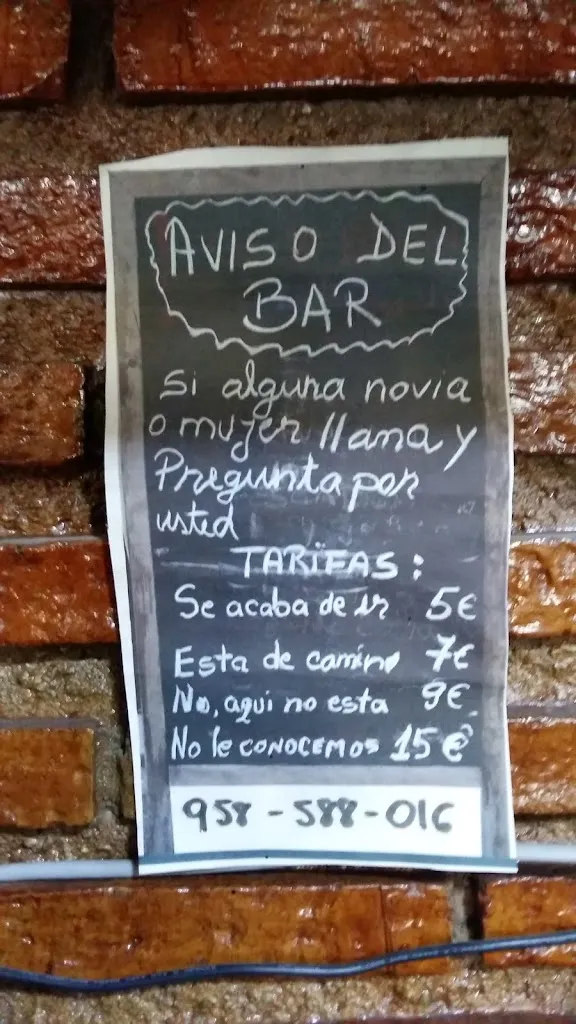 AVISO DEL
BAR
Si alguna novia
o mujer llana y
Pregunta por
usted
TARIFAS:
Se acaba de ir 5€
Esta de camino 7€
No, aqui no esta 9€
No le conocemos 15€
958-588-016